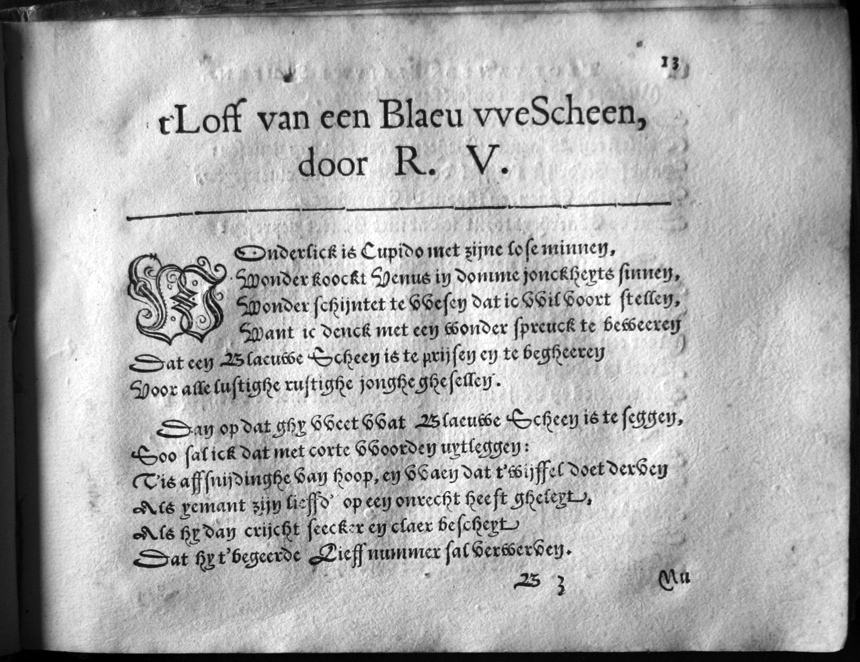 13
t'Loff van een Blaeu vveScheen,
door R. V.
WOnderlick is Cupido met zijne lose minnen,
Wonder koockt Venus in domme jonckheyts sinnen,
Wonder schijntet te vvesen dat ic vvil voort stellen,
Want ic denck met een wonder spreuck te beweeren
Dat een Blaeuwe Scheen is te prijsen en te begheeren
Voor alle lustighe rustighe jonghe ghesellen.
Dan op dat ghy vveet vvat Blaeuwe Scheen is te seggen,
Soo sal ick dat met corte vvoorden uytleggen:
Tis affsnijdinghe van hoop, en vvaen dat t'wijffel doet derven
Als yemant zijn lieffd' op een onrecht heeft gheleyt,
Als hy dan crijcht seecker en claer bescheyt
Dat hy t'begeerde Lieff nummer sal verwerven.
B 3 Nu